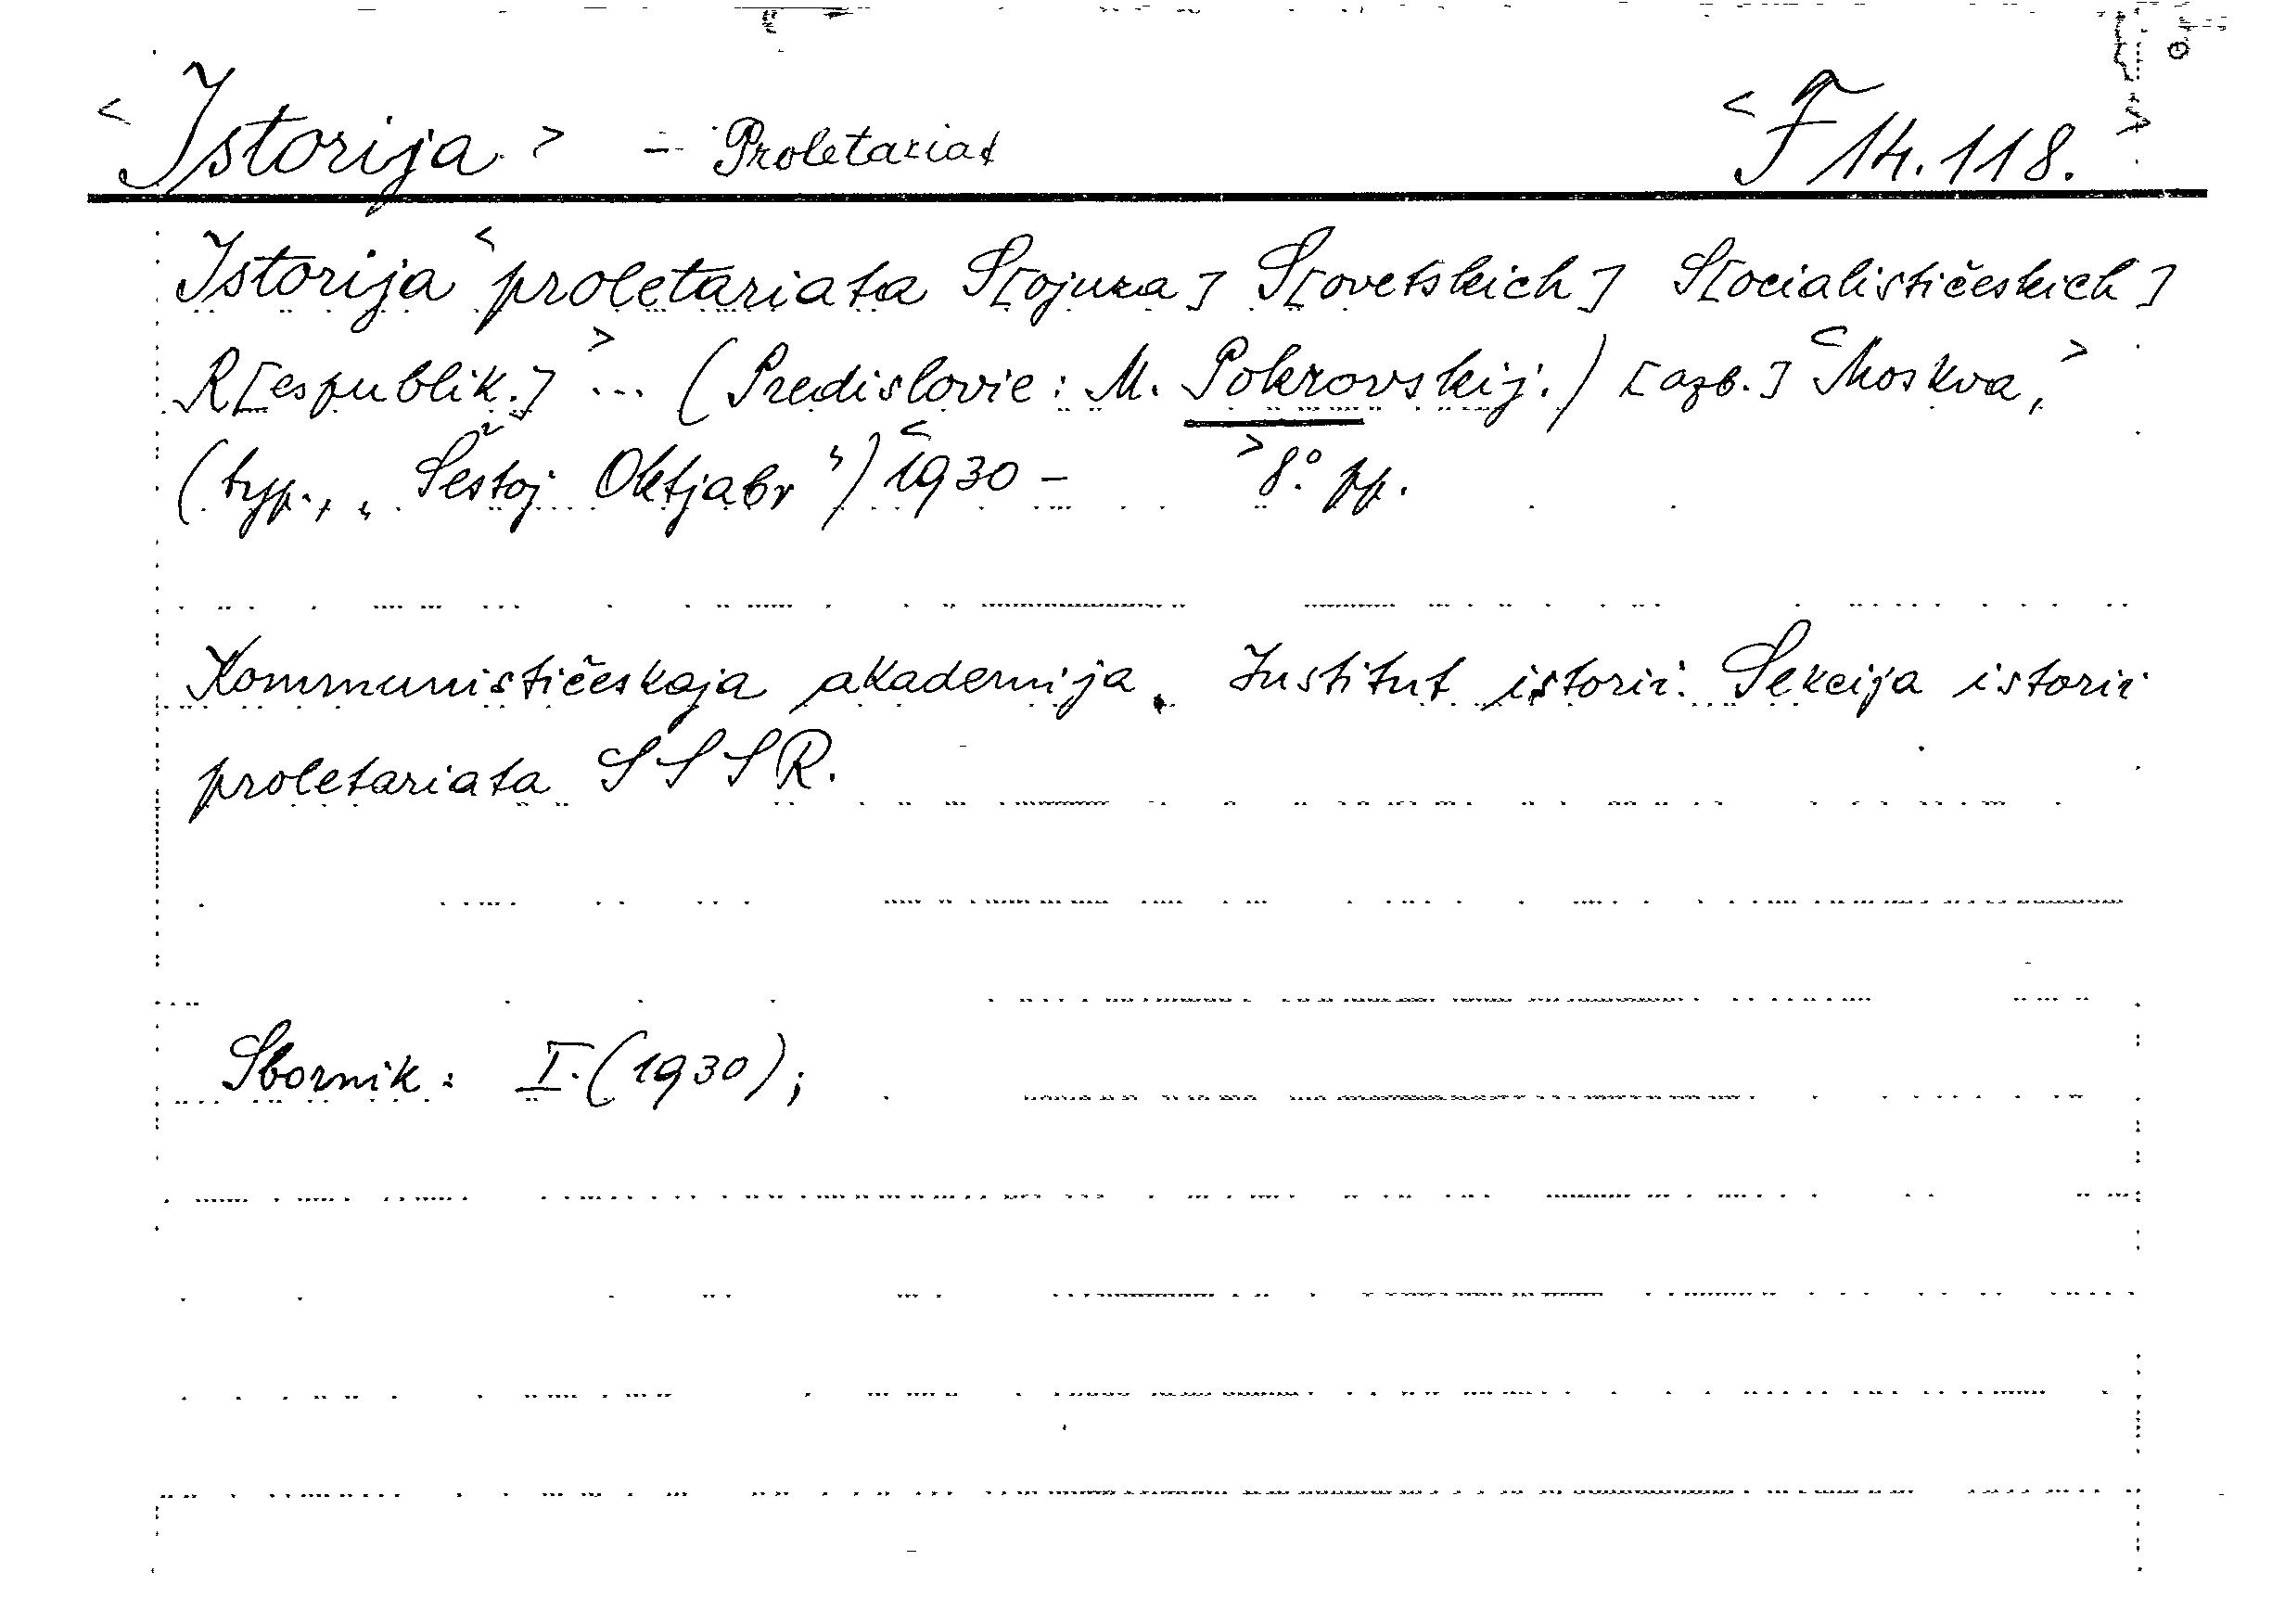 <Istorija> - Proletariat <F 14.118.>
Istorija <proletariata S[ojuza] S[ovetskich] S[ocialističeskich]
R[espublik.]> ... (Predislovie: M. Pokrovskij.) [azb.] <Moskva,>
(typ., „Šestoj Oktjabr") <1930 - > 8° pp.
Kommunističeskaja akademija. Institut istorii. Sekcija istorii
proletariata SSSR.
Sbornik: I. (1930);